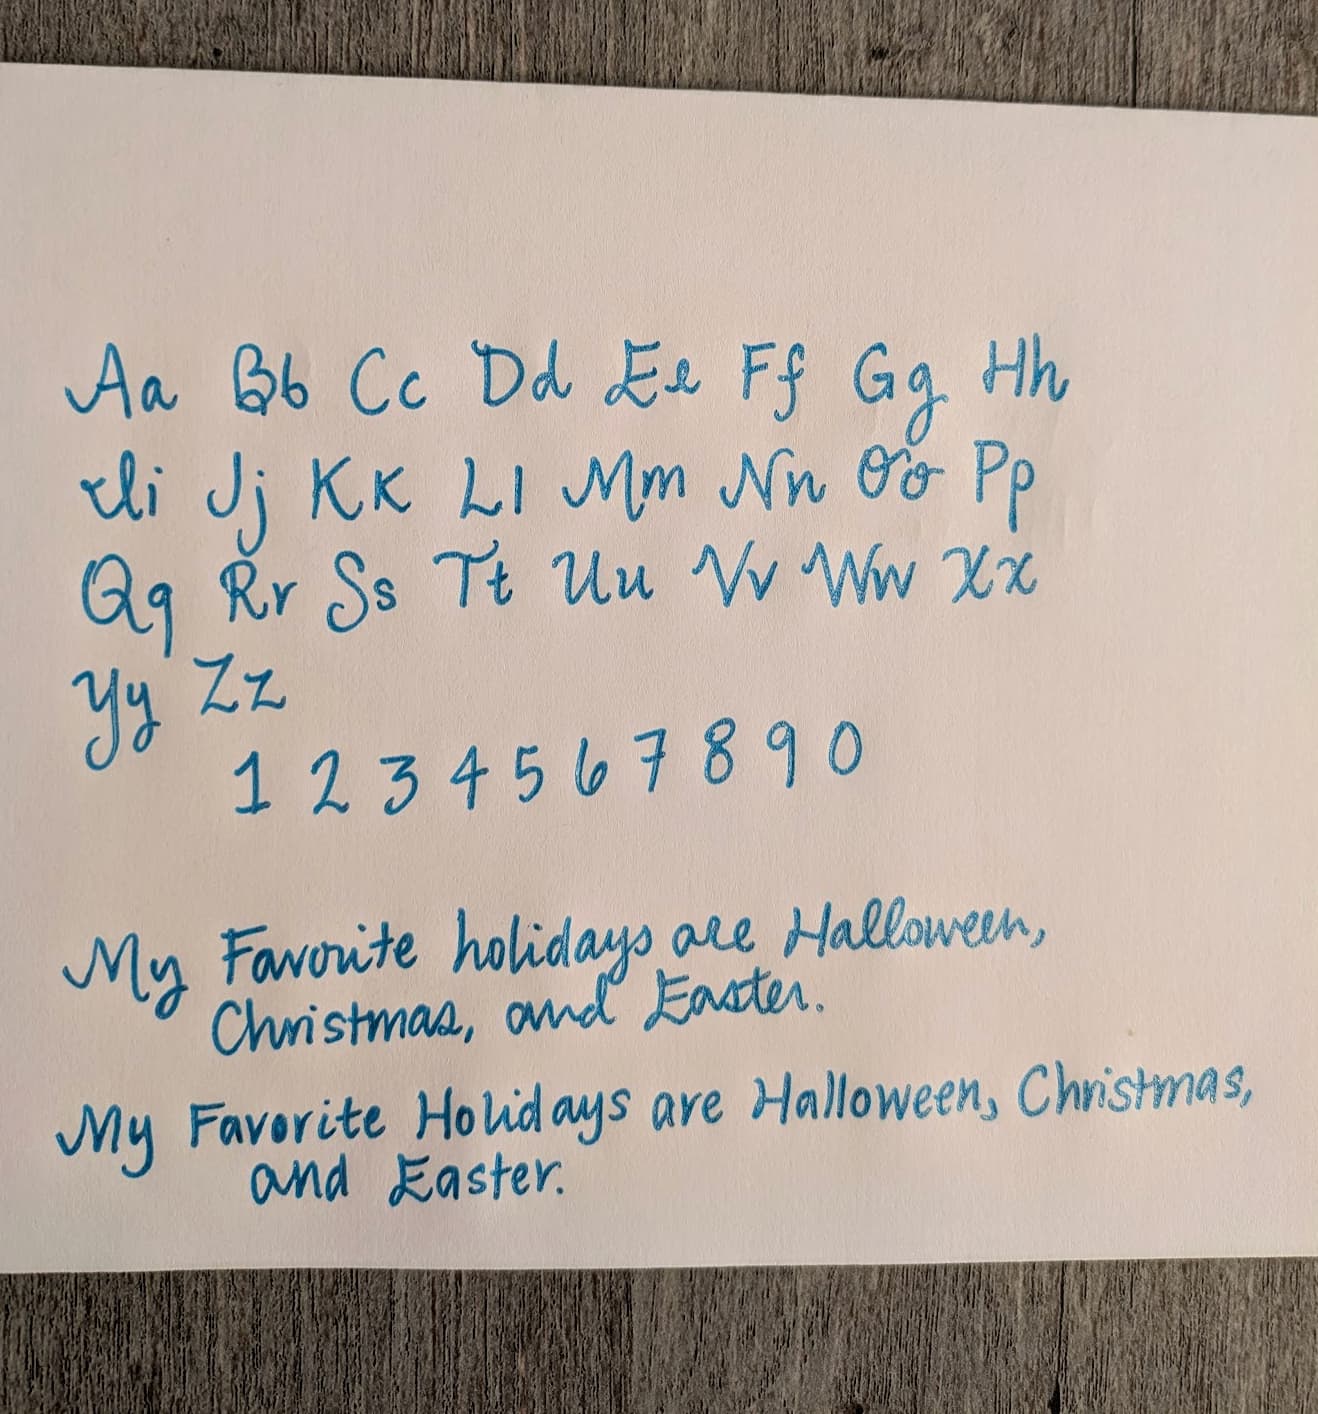 Aa Bb Cc Dd Ee Ff Gg Hh
Ii Jj Kk Ll Mm Nn Oo Pp
Qq Rr Ss Tt Uu Vv Ww Xx
Yy Zz
1 2 3 4 5 6 7 8 9 0
My Favorite holidays are Halloween,
Christmas, and Easter.
My Favorite Holidays are Halloween, Christmas,
and Easter.